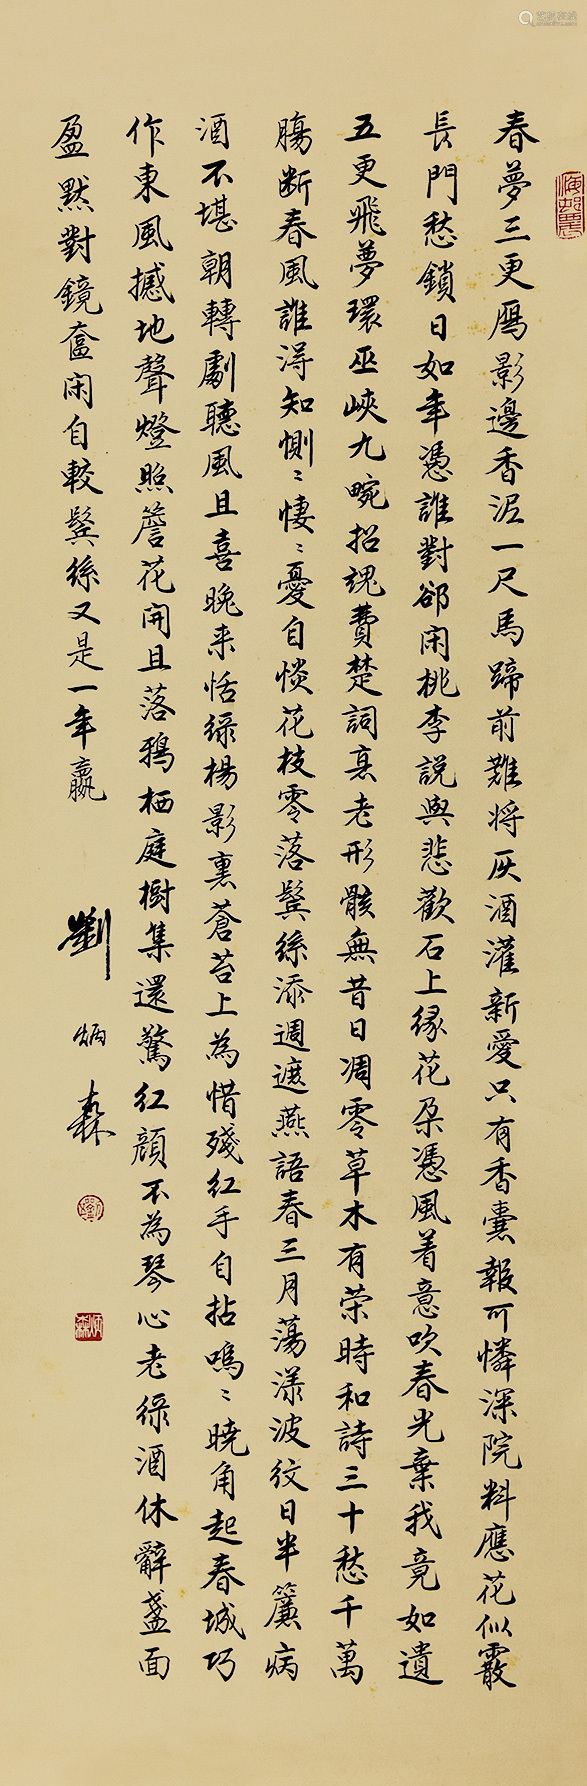 春夢三更鴈影邊香泥一尺馬蹄前難將灰酒灌新愛只有香囊報可憐深院料應花似霰
長門愁鎖日如年憑誰對郤閑桃李說與悲歡石上緣花朵憑風着意吹春光棄我竟如遺
五更飛夢環巫峽九畹招魂費楚詞衰老形骸無昔日凋零草木有荣時和詩三十愁千萬
腸斷春風誰淂知惻〻悽〻憂自惔花枝零落鬓絲添週遮燕語春三月蕩漾波紋日半簾病
酒不堪朝轉劇聽風且喜晚来恬绿楊影裏蒼苔上為惜殘红手自拈嗚〻曉角起春城巧
作東風撼地聲燈照簷花開且落鴉栖庭樹集還驚红顔不為琴心老绿酒休辭盞面
盈默對鏡奩闲自較鬓絲又是一年贏
劉炳森
炳森